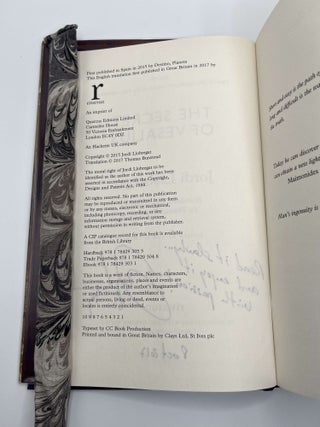 First published in Spain in 2015 by Destino, Planeta
This English translation first published in Great Britain in 2017 by
r
riverrun
An imprint of
Quercus Editions Limited
Carmelite House
50 Victoria Embankment
London EC4Y 0DZ
An Hachette UK company
Copyright © 2015 Jordi Llobregat
Translation © 2017 Thomas Bunstead
The moral right of Jordi Llobregat to be
identified as the author of this work has been
asserted in accordance with the Copyright,
Designs and Patents Act, 1988.
All rights reserved. No part of this publication
may be reproduced or transmitted in any form
or by any means, electronic or mechanical,
including photocopy, recording, or any
information storage and retrieval system,
without permission in writing from the publisher.
A CIP catalogue record for this book is available
from the British Library
Hardback 978 1 78429
Trade Paperback 978 1 78429
Ebook 978 1 78429
This book is a work of fiction. Names, characters,
businesses, organisations, places and events are
either the product of the author's imagination
or used fictitiously. Any resemblance to
actual persons, living or dead, events or
locales is entirely coincidental.
10 9 8 7 6 5 4 3 2 1
Typeset by CC Book Production
Printed and bound in Great Britain by Clays Ltd, St Ives plc
Short and easy is the path of
long and difficult is the
its truth.
Today he can discover
can obtain a new light
Maimonides
Man's ingenuity is
Read it slowly
and enjoy
with passion